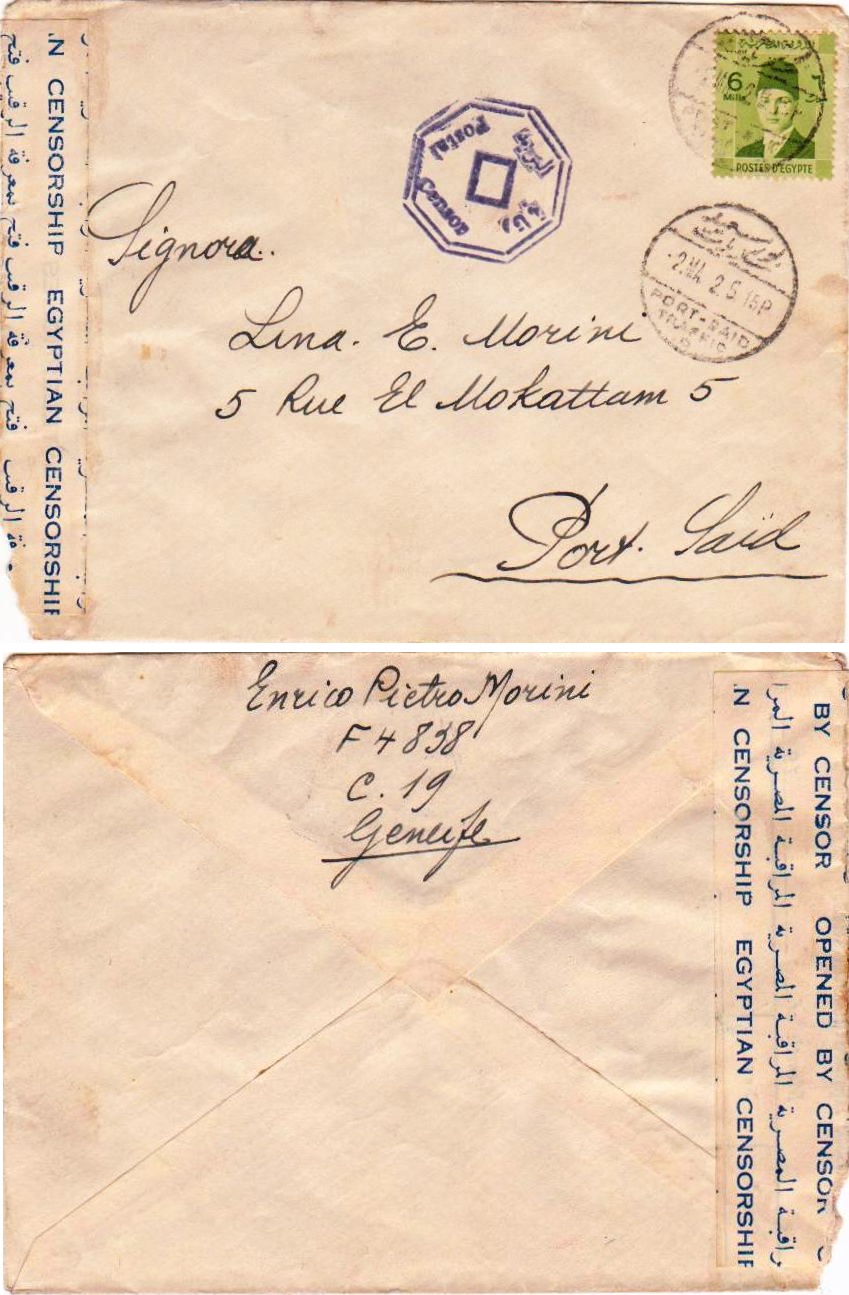 .N CENSORSHIP EGYPTIAN CENSORSHIP
فتح بمعرفة الرقيب فتح بمعرفة الرقيب فتح
Postal
Censor
البريد
6
Mills
POSTES D'EGYPTE
بورسعيد
2.MA 2 5 15P
PORT-SAID
TRAFFIC
Signora.
Lina. E. Morini
5 Rue El Mokattam 5
Port. Saïd
Enrico Pietro Morini
F4838
C. 19
Geneife
BY CENSOR OPENED BY CENSOR
المراقبة المصرية المراقبة المصرية المراقبة المصرية المراقبة
.N CENSORSHIP EGYPTIAN CENSORSHIP